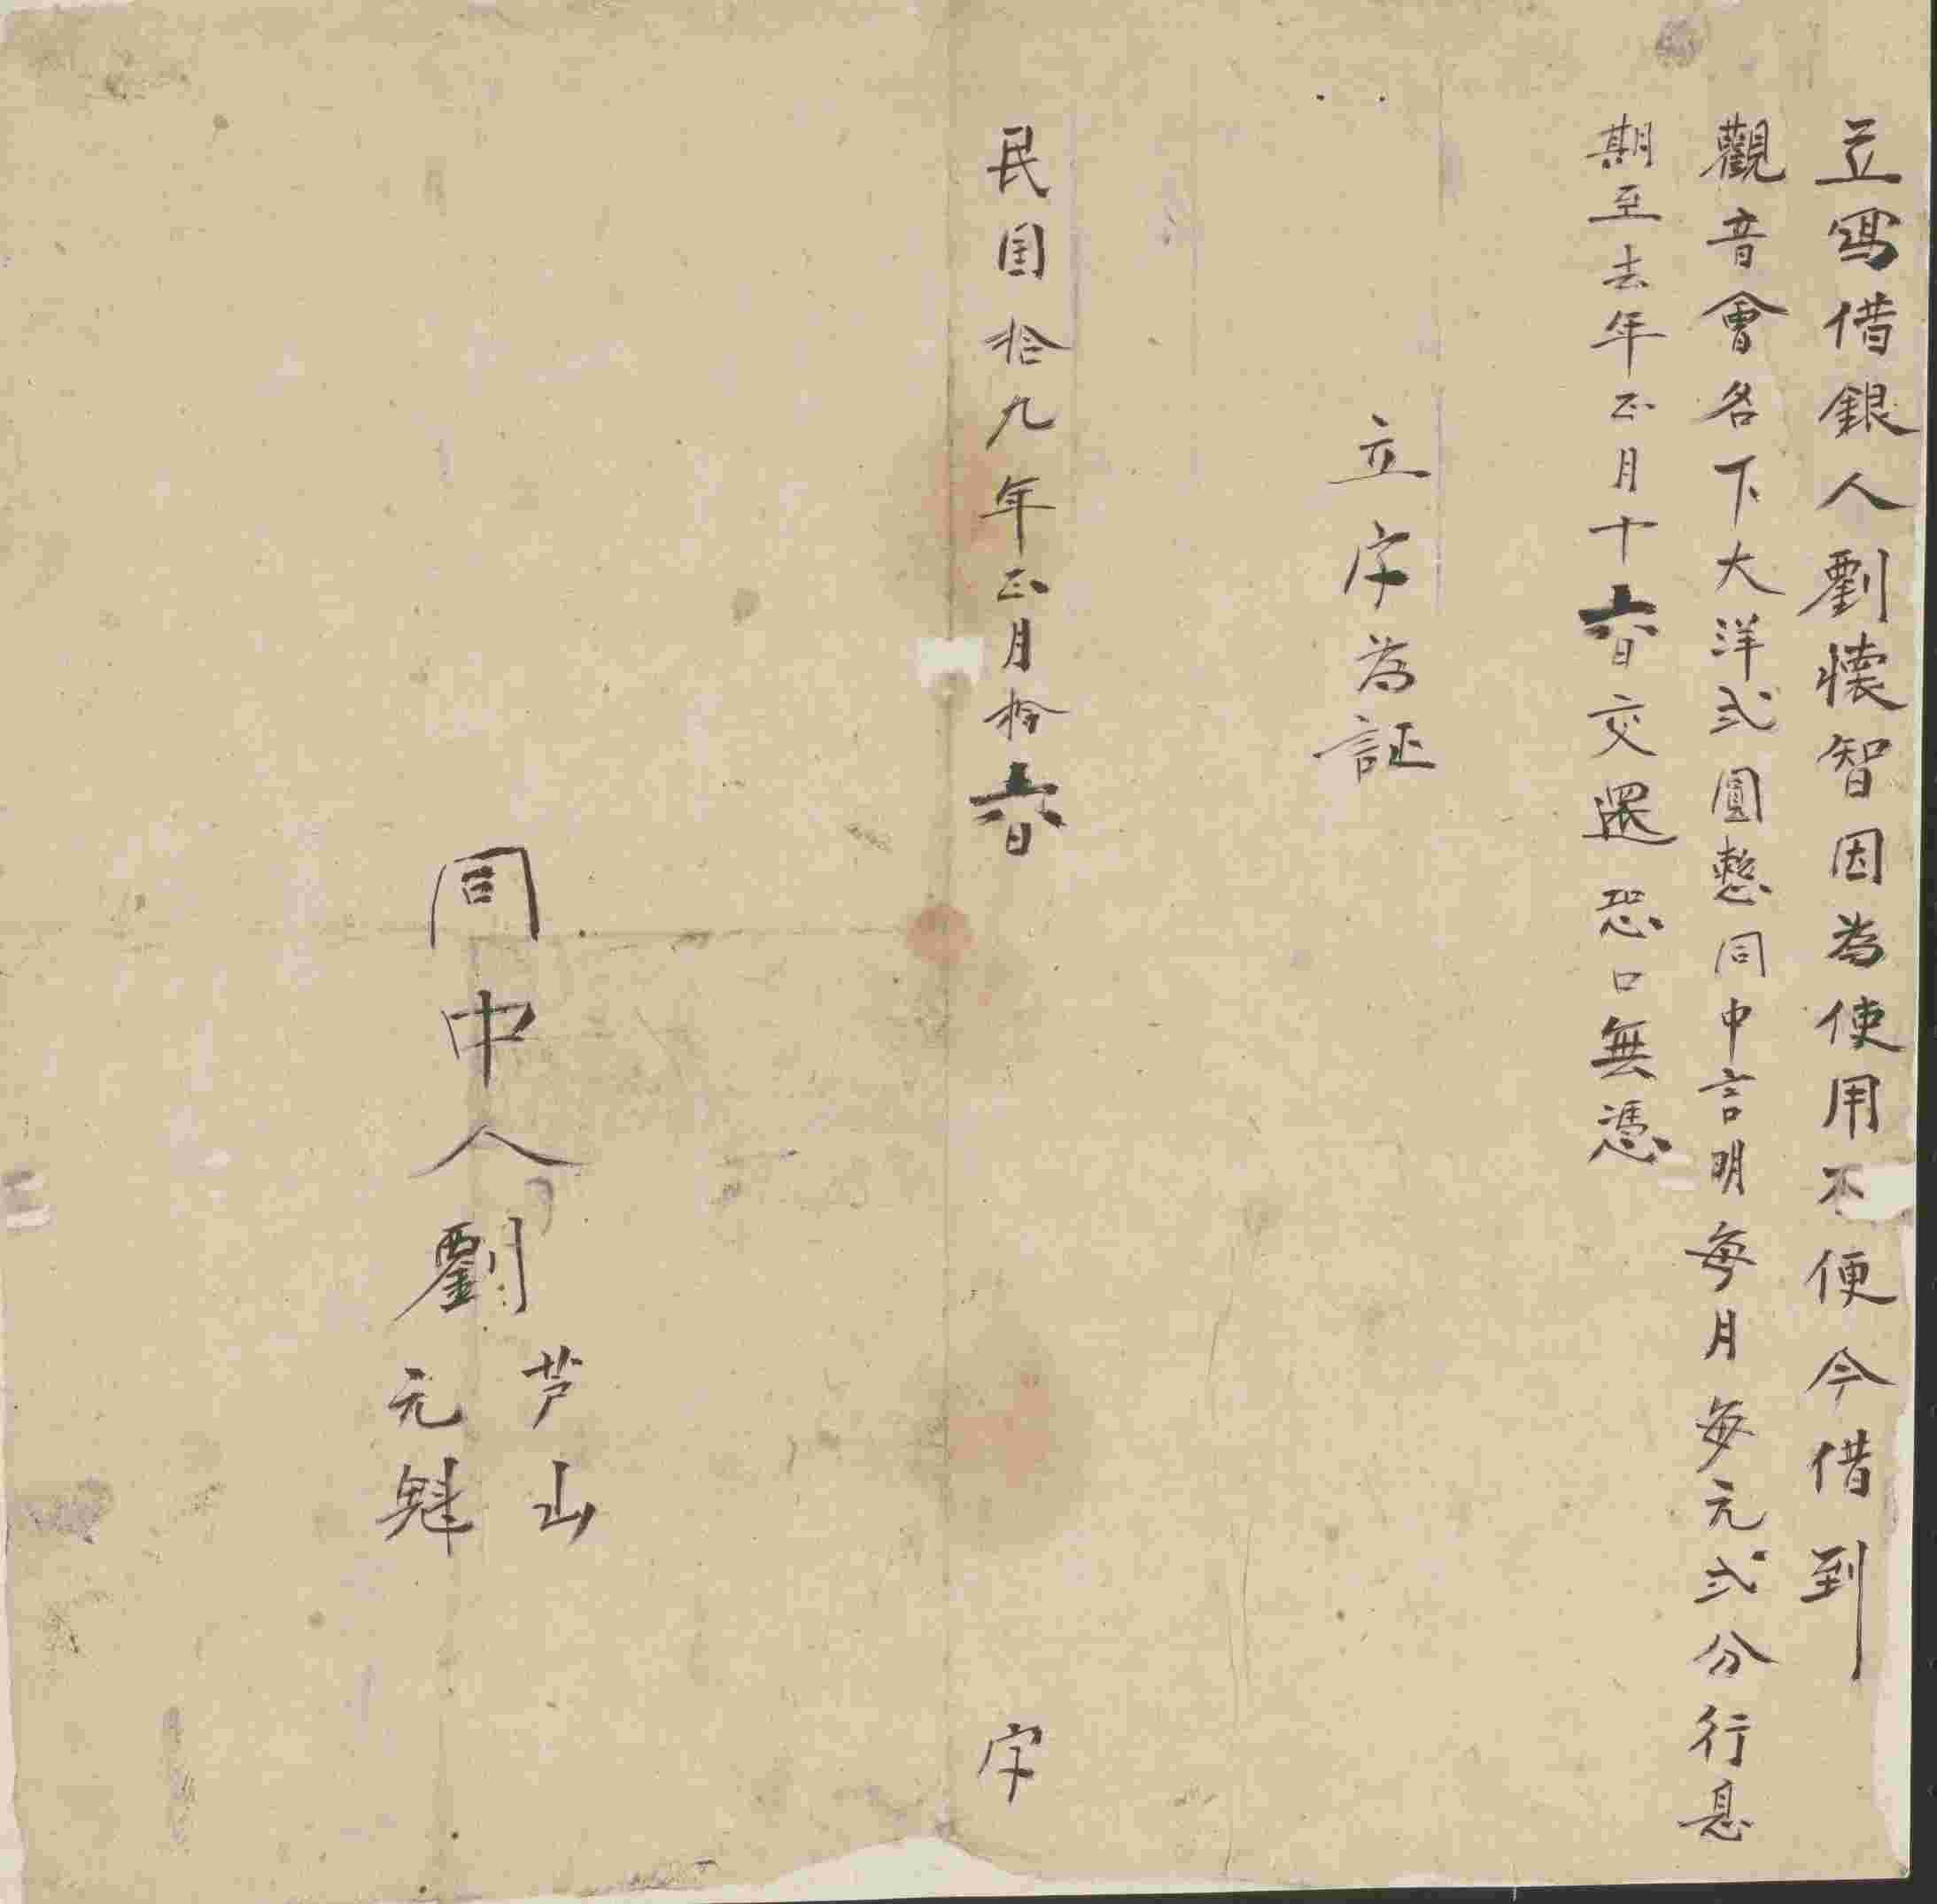 立寫借銀人劉懷智因為使用不便今借到
觀音會名下大洋弍圓整同中言明每月每元弍分行息
期至去年正月十六日交還恐口無憑
立字為証
民国拾九年正月拾六日 字
同中人劉
芦山
元魁